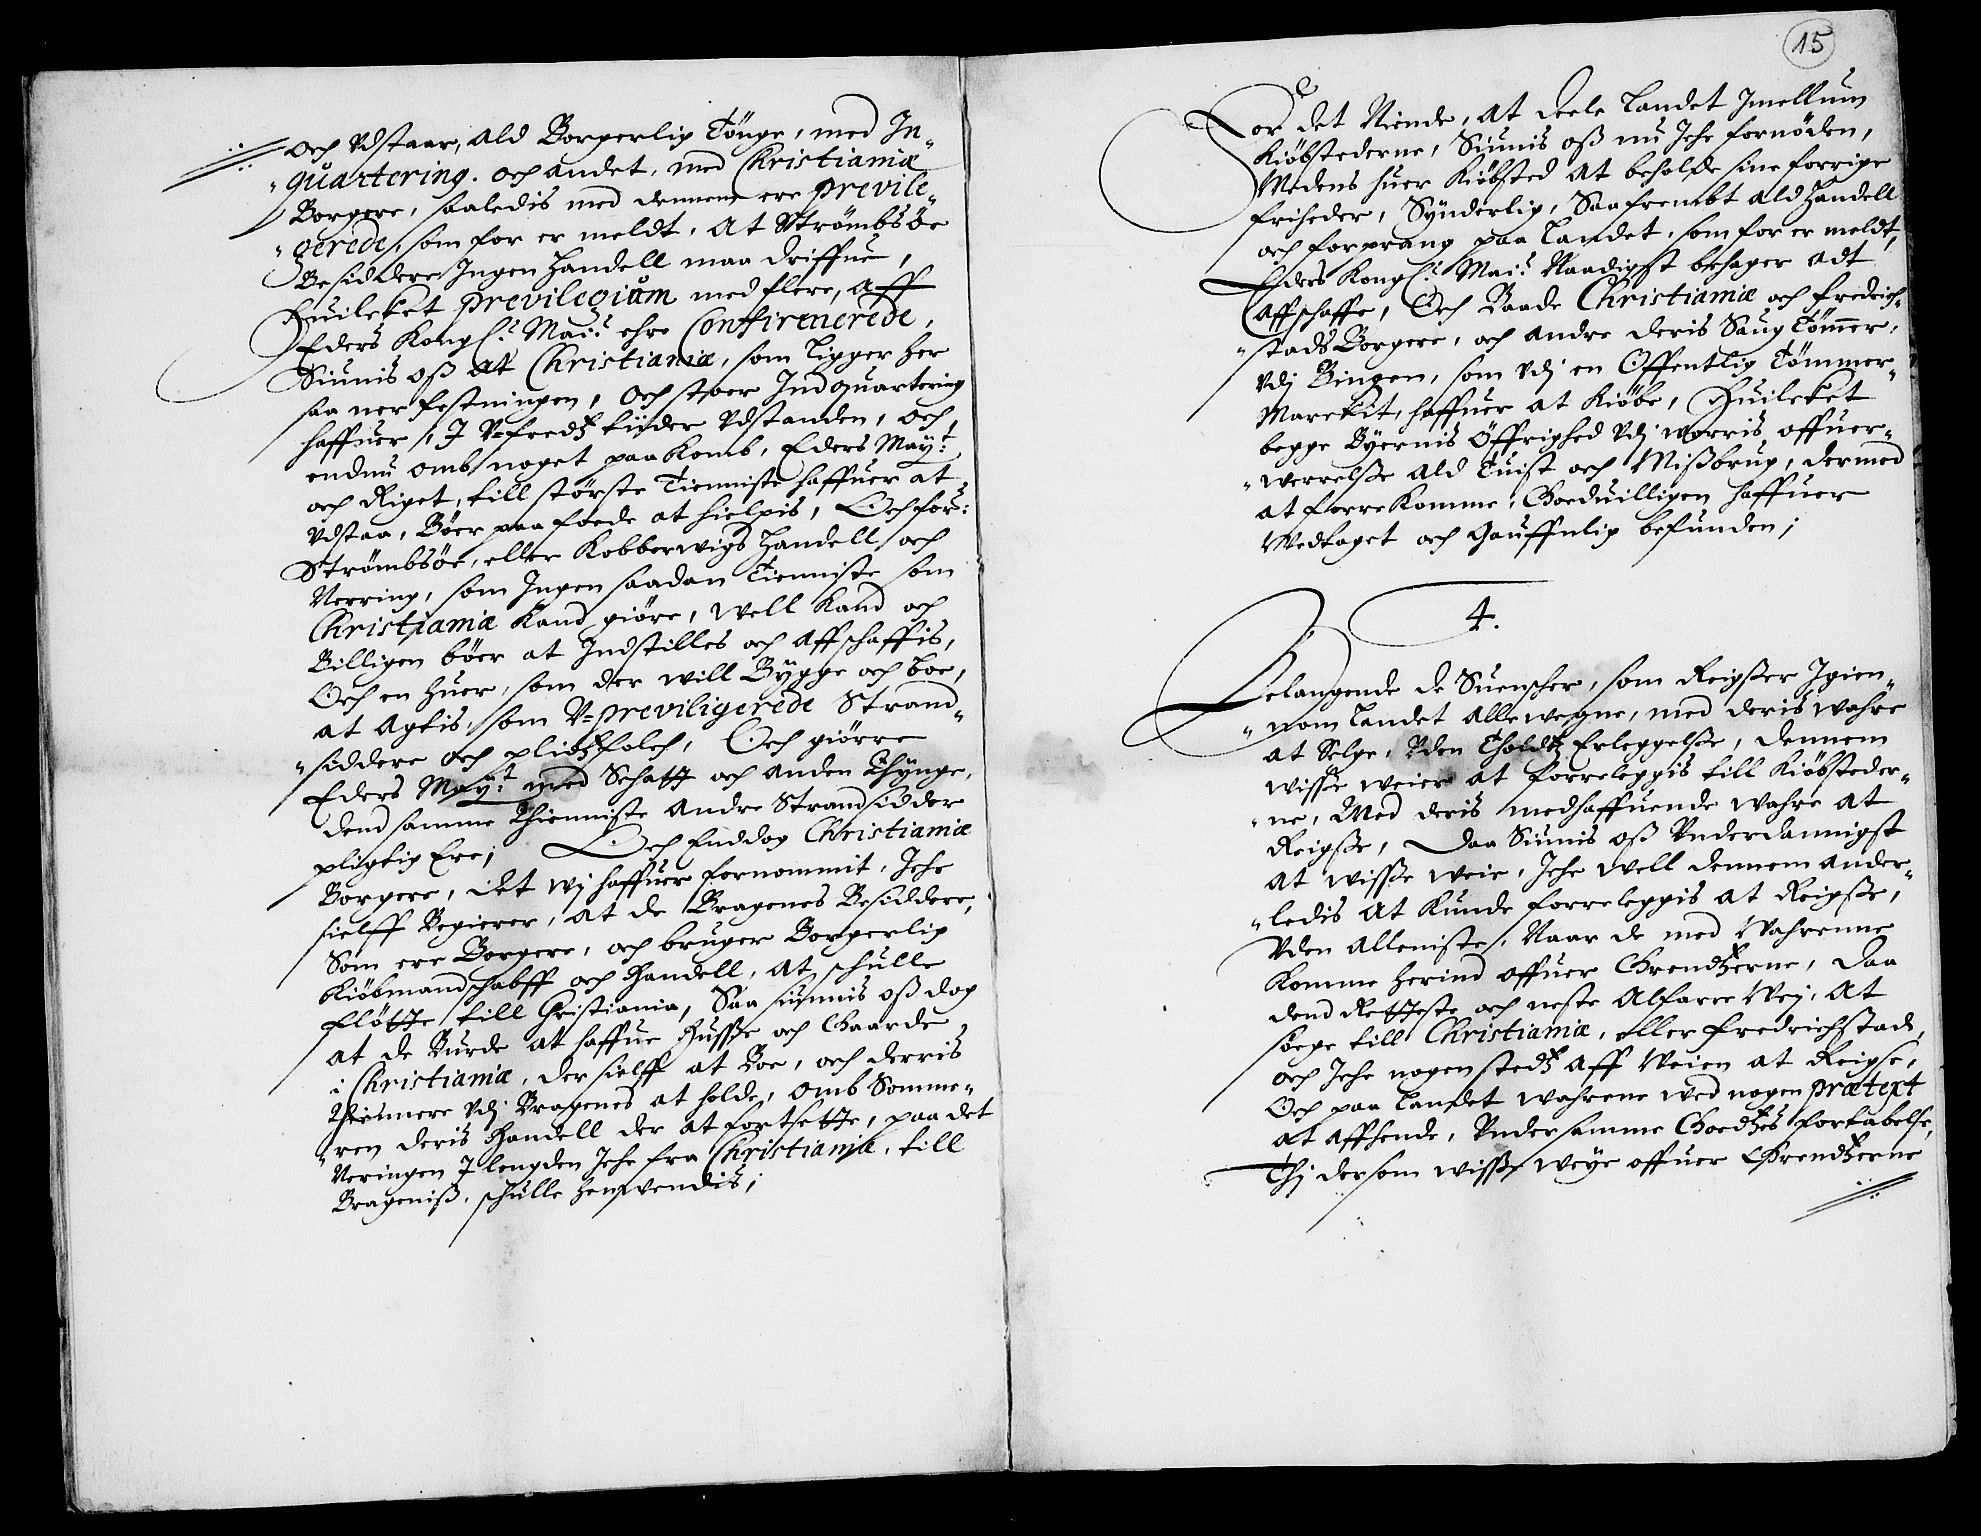 och Vdstaar, ald Borgerlig Tönge, med In¬
"quartering. och andet, med Christianiæ
Borgere, saaledis med dennem ere previle¬
"gerede, som for er meldt, at Strömbsöe
Besiddere Ingen Handell maa driffue,
Huilcket previlegium med flere, aff
Eders Kongl: May:t ehre Confirmerede,
Siunis oß at Christianiæ, som ligger her
saa ner festningen, och stoer Indquartering
haffuer, I V-fredtz tijder Vdstanden, och
endnu omb noget paakomb, Eders May:t
och Riget, till störste Tienniste haffuer at
Vdstaa, Böer paa foede at hielpis, Och for:
Strömbsöe, eller Kobberwigs Handell och
Nerring, som Ingen saadan Tienniste som
Christianiæ kand giöre, well kand och
Billigen böer at Indstilles och affschaffis,
Och en huer, som der will Bygge och boe,
at agtis, som V-previligerede Strand¬
"siddere och pligtzfolch, Och giörre
Eders May:t med Schatt och anden Thynge,
dend samme Thienniste andre Strandsidder
pligtig Ere; Och Enddog Christianiæ
Borgere, det wj haffuer fornommit, Iche
sielff Begierer, at de Bragenes Besiddere,
Som ere Borgere, och bruger Borgerlig
Kiöbmandschabff och Handell, at schulle
flötte till Christiania, Saa siunnis oß dog
at de Burde at haffue Husße och Gaarde
i Christianiæ, der sielff at Boe, och derris
Thiennere Vdj Bragenes at holde, omb Somme¬
"ren deris Handell der at fortsette, paa det
Neringen I lengden Iche fra Christianiæ, till
Brageniß, schulle henwendis;
15
For det Niende, at deele Landet Imellum
Kiöbstederne, Siunis oß nu Iche fornöden,
Medens huer Kiöbsted at beholde sine forrige
friheder, Synderlig, Saafrembt ald Handell
och forprang paa Landet, som for er meldt,
Eders Kongl: Mai:t Naadigst behager adt
affschaffe, Och Baade Christianiæ och fredrich¬
"stads Borgere, och andre deris Saug Tömmer,
Vdj Bingen, som Vdj en Offentlig Tömmer¬
Marckit, haffuer at Kiöbe, Huilcket
begge Byernis Öffrighed Vdj worris offuer¬
"werrelße ald Tuist och Mißbrug, dermed
at forrekomme, Goeduilligen haffuer
Wedtaget och Gauffnlig befunden;
4.
Belangende de Suenscher, som Reigßer Igien¬
"nom Landet allewegne, med deris wahre
at Selge, Vden Tholdtz Erleggelße, dennem
wisße weier at forreleggis till Kiöbsteder¬
"ne, Med deris medhaffuende wahre at
Reigße, Daa Siunis oß Vnderdannigst
at wisße weie, Iche well dennem ander¬
"ledis at kunde forreleggis at Reigße,
Vden alleniste, Naar de med Wahrenne
komme herind offuer Grendtzerne, Daa
dend Retteste och neste Alfarre Wej, at
söege till Christianiæ, eller fredrichstad,
och Iche nogenstedtz aff Weien at Reigse,
Och paa Landet wahrene wed nogen prætext
at affhende, Vnder samme Goedtzes fortabelse,
Thj dersom wisße weye offuer Grendtzerne